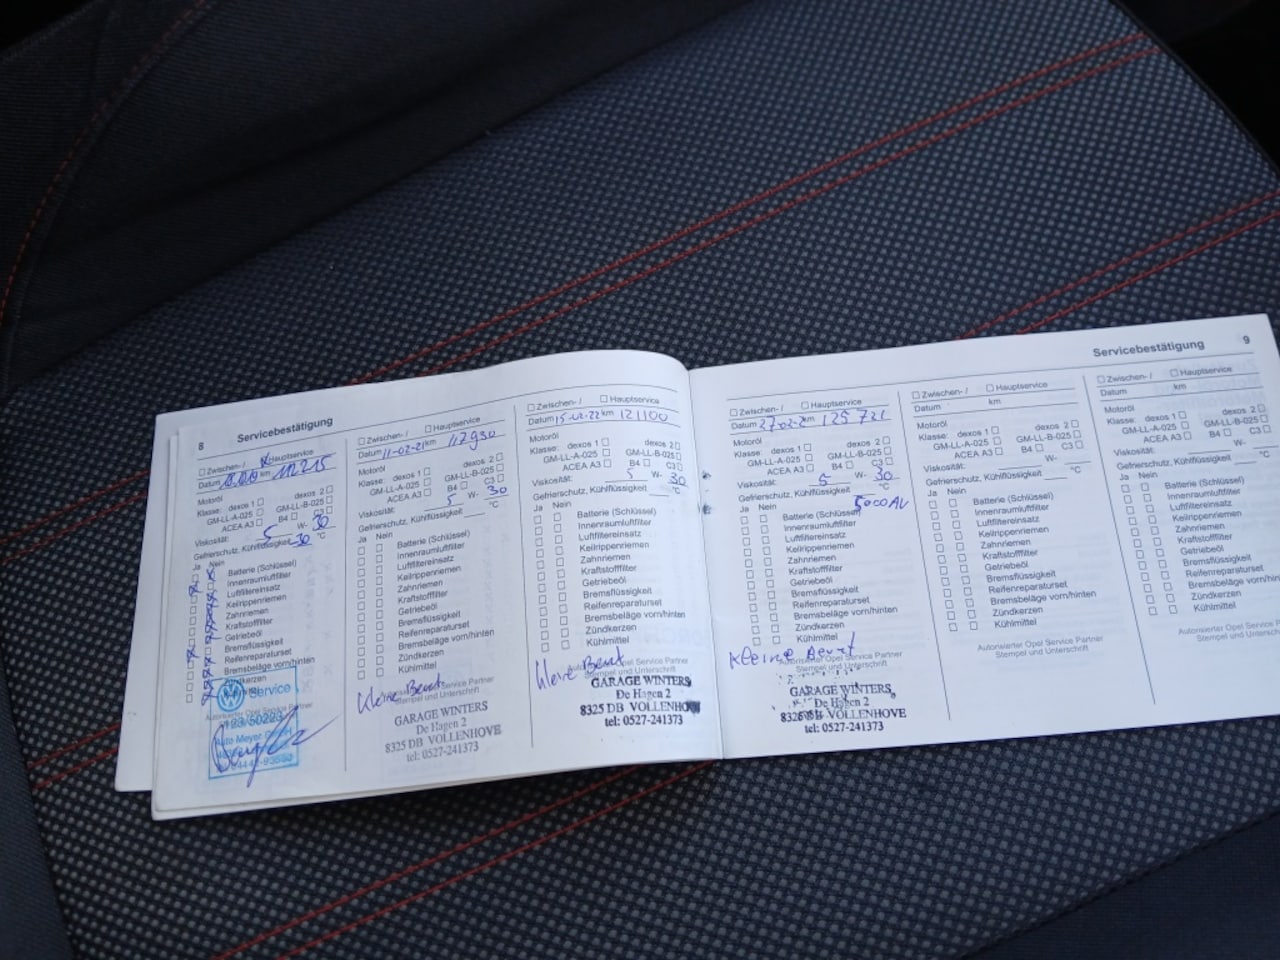 8 Servicebestätigung
Zwischen- / Hauptservice
Datum km 112215
Motoröl
Klasse: dexos 1 dexos 2
GM-LL-A-025 GM-LL-B-025
ACEA A3 B4 C3
Viskosität: 5 W- 30
Gefrierschutz, Kühlflüssigkeit -30 °C
Ja Nein
Batterie (Schlüssel)
Innenraumluftfilter
Luftfiltereinsatz
Keilrippenriemen
Zahnriemen
Kraftstofffilter
Getriebeöl
Bremsflüssigkeit
Reifenreparaturset
Bremsbeläge vorn/hinten
Service
Auto Meyer
Zwischen- / Hauptservice
Datum 11-02-21 km 117930
Motoröl
Klasse: dexos 1 dexos 2
GM-LL-A-025 GM-LL-B-025
ACEA A3 B4 C3
Viskosität: 5 W- 30
Gefrierschutz, Kühlflüssigkeit °C
Ja Nein
Batterie (Schlüssel)
Innenraumluftfilter
Luftfiltereinsatz
Keilrippenriemen
Zahnriemen
Kraftstofffilter
Getriebeöl
Bremsflüssigkeit
Reifenreparaturset
Bremsbeläge vorn/hinten
Zündkerzen
Kühlmittel
Kleine Beurt
Autorisierter Opel Service Partner
Stempel und Unterschrift
GARAGE WINTERS
De Hagen 2
8325 DB VOLLENHOVE
tel: 0527-241373
Zwischen- / Hauptservice
Datum 15-02-22 km 121100
Motoröl
Klasse: dexos 1 dexos 2
GM-LL-A-025 GM-LL-B-025
ACEA A3 B4 C3
Viskosität: 5 W- 30
Gefrierschutz, Kühlflüssigkeit °C
Ja Nein
Batterie (Schlüssel)
Innenraumluftfilter
Luftfiltereinsatz
Keilrippenriemen
Zahnriemen
Kraftstofffilter
Getriebeöl
Bremsflüssigkeit
Reifenreparaturset
Bremsbeläge vorn/hinten
Zündkerzen
Kühlmittel
Kleine Beurt
Opel Service Partner
Stempel und Unterschrift
GARAGE WINTERS
De Hagen 2
8325 DB VOLLENHOVE
tel: 0527-241373
Servicebestätigung 9
Zwischen- / Hauptservice
Datum 27-02-2 km 125721
Motoröl
Klasse: dexos 1 dexos 2
GM-LL-A-025 GM-LL-B-025
ACEA A3 B4 C3
Viskosität: 5 W- 30
Gefrierschutz, Kühlflüssigkeit °C
Ja Nein
Batterie (Schlüssel)
Innenraumluftfilter
Luftfiltereinsatz
Keilrippenriemen
Zahnriemen
Kraftstofffilter
Getriebeöl
Bremsflüssigkeit
Reifenreparaturset
Bremsbeläge vorn/hinten
Zündkerzen
Kühlmittel
Kleine Beurt
Autorisierter Opel Service Partner
Stempel und Unterschrift
GARAGE WINTERS
De Hagen 2
8325 DB VOLLENHOVE
tel: 0527-241373
Zwischen- / Hauptservice
Datum km
Motoröl
Klasse: dexos 1 dexos 2
GM-LL-A-025 GM-LL-B-025
ACEA A3 B4 C3
Viskosität: W-
Gefrierschutz, Kühlflüssigkeit °C
Ja Nein
Batterie (Schlüssel)
Innenraumluftfilter
Luftfiltereinsatz
Keilrippenriemen
Zahnriemen
Kraftstofffilter
Getriebeöl
Bremsflüssigkeit
Reifenreparaturset
Bremsbeläge vorn/hinten
Zündkerzen
Kühlmittel
Autorisierter Opel Service Partner
Stempel und Unterschrift
Zwischen- / Hauptservice
Datum km
Motoröl
Klasse: dexos 1 dexos 2
GM-LL-A-025 GM-LL-B-025
ACEA A3 B4 C3
Viskosität: W-
Gefrierschutz, Kühlflüssigkeit
Ja Nein
Batterie (Schlüssel)
Innenraumluftfilter
Luftfiltereinsatz
Keilrippenriemen
Zahnriemen
Kraftstofffilter
Getriebeöl
Bremsflüssigkeit
Reifenreparaturset
Bremsbeläge vorn/hinten
Zündkerzen
Kühlmittel
Autorisierter Opel Service
Stempel und Unterschrift